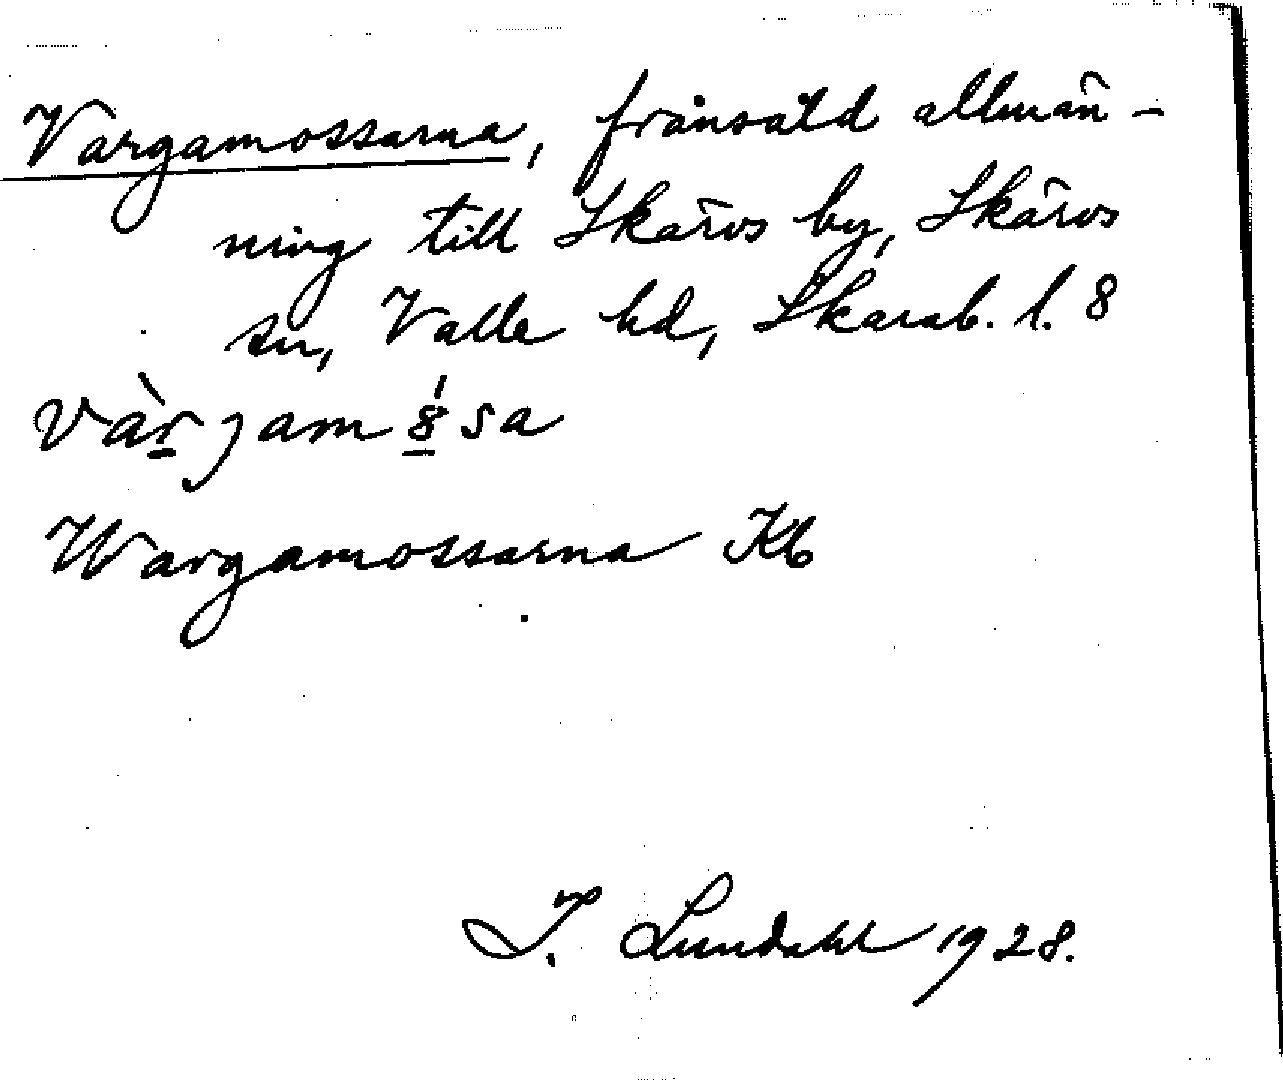 Vargamossarna, frånsåld allmän-
ning till Skärvs by, Skärvs
sn, Valle hd, Skarab. l. 8
vàrjam8sa
Wargamossarna Kb
I. Lundahl 1928.